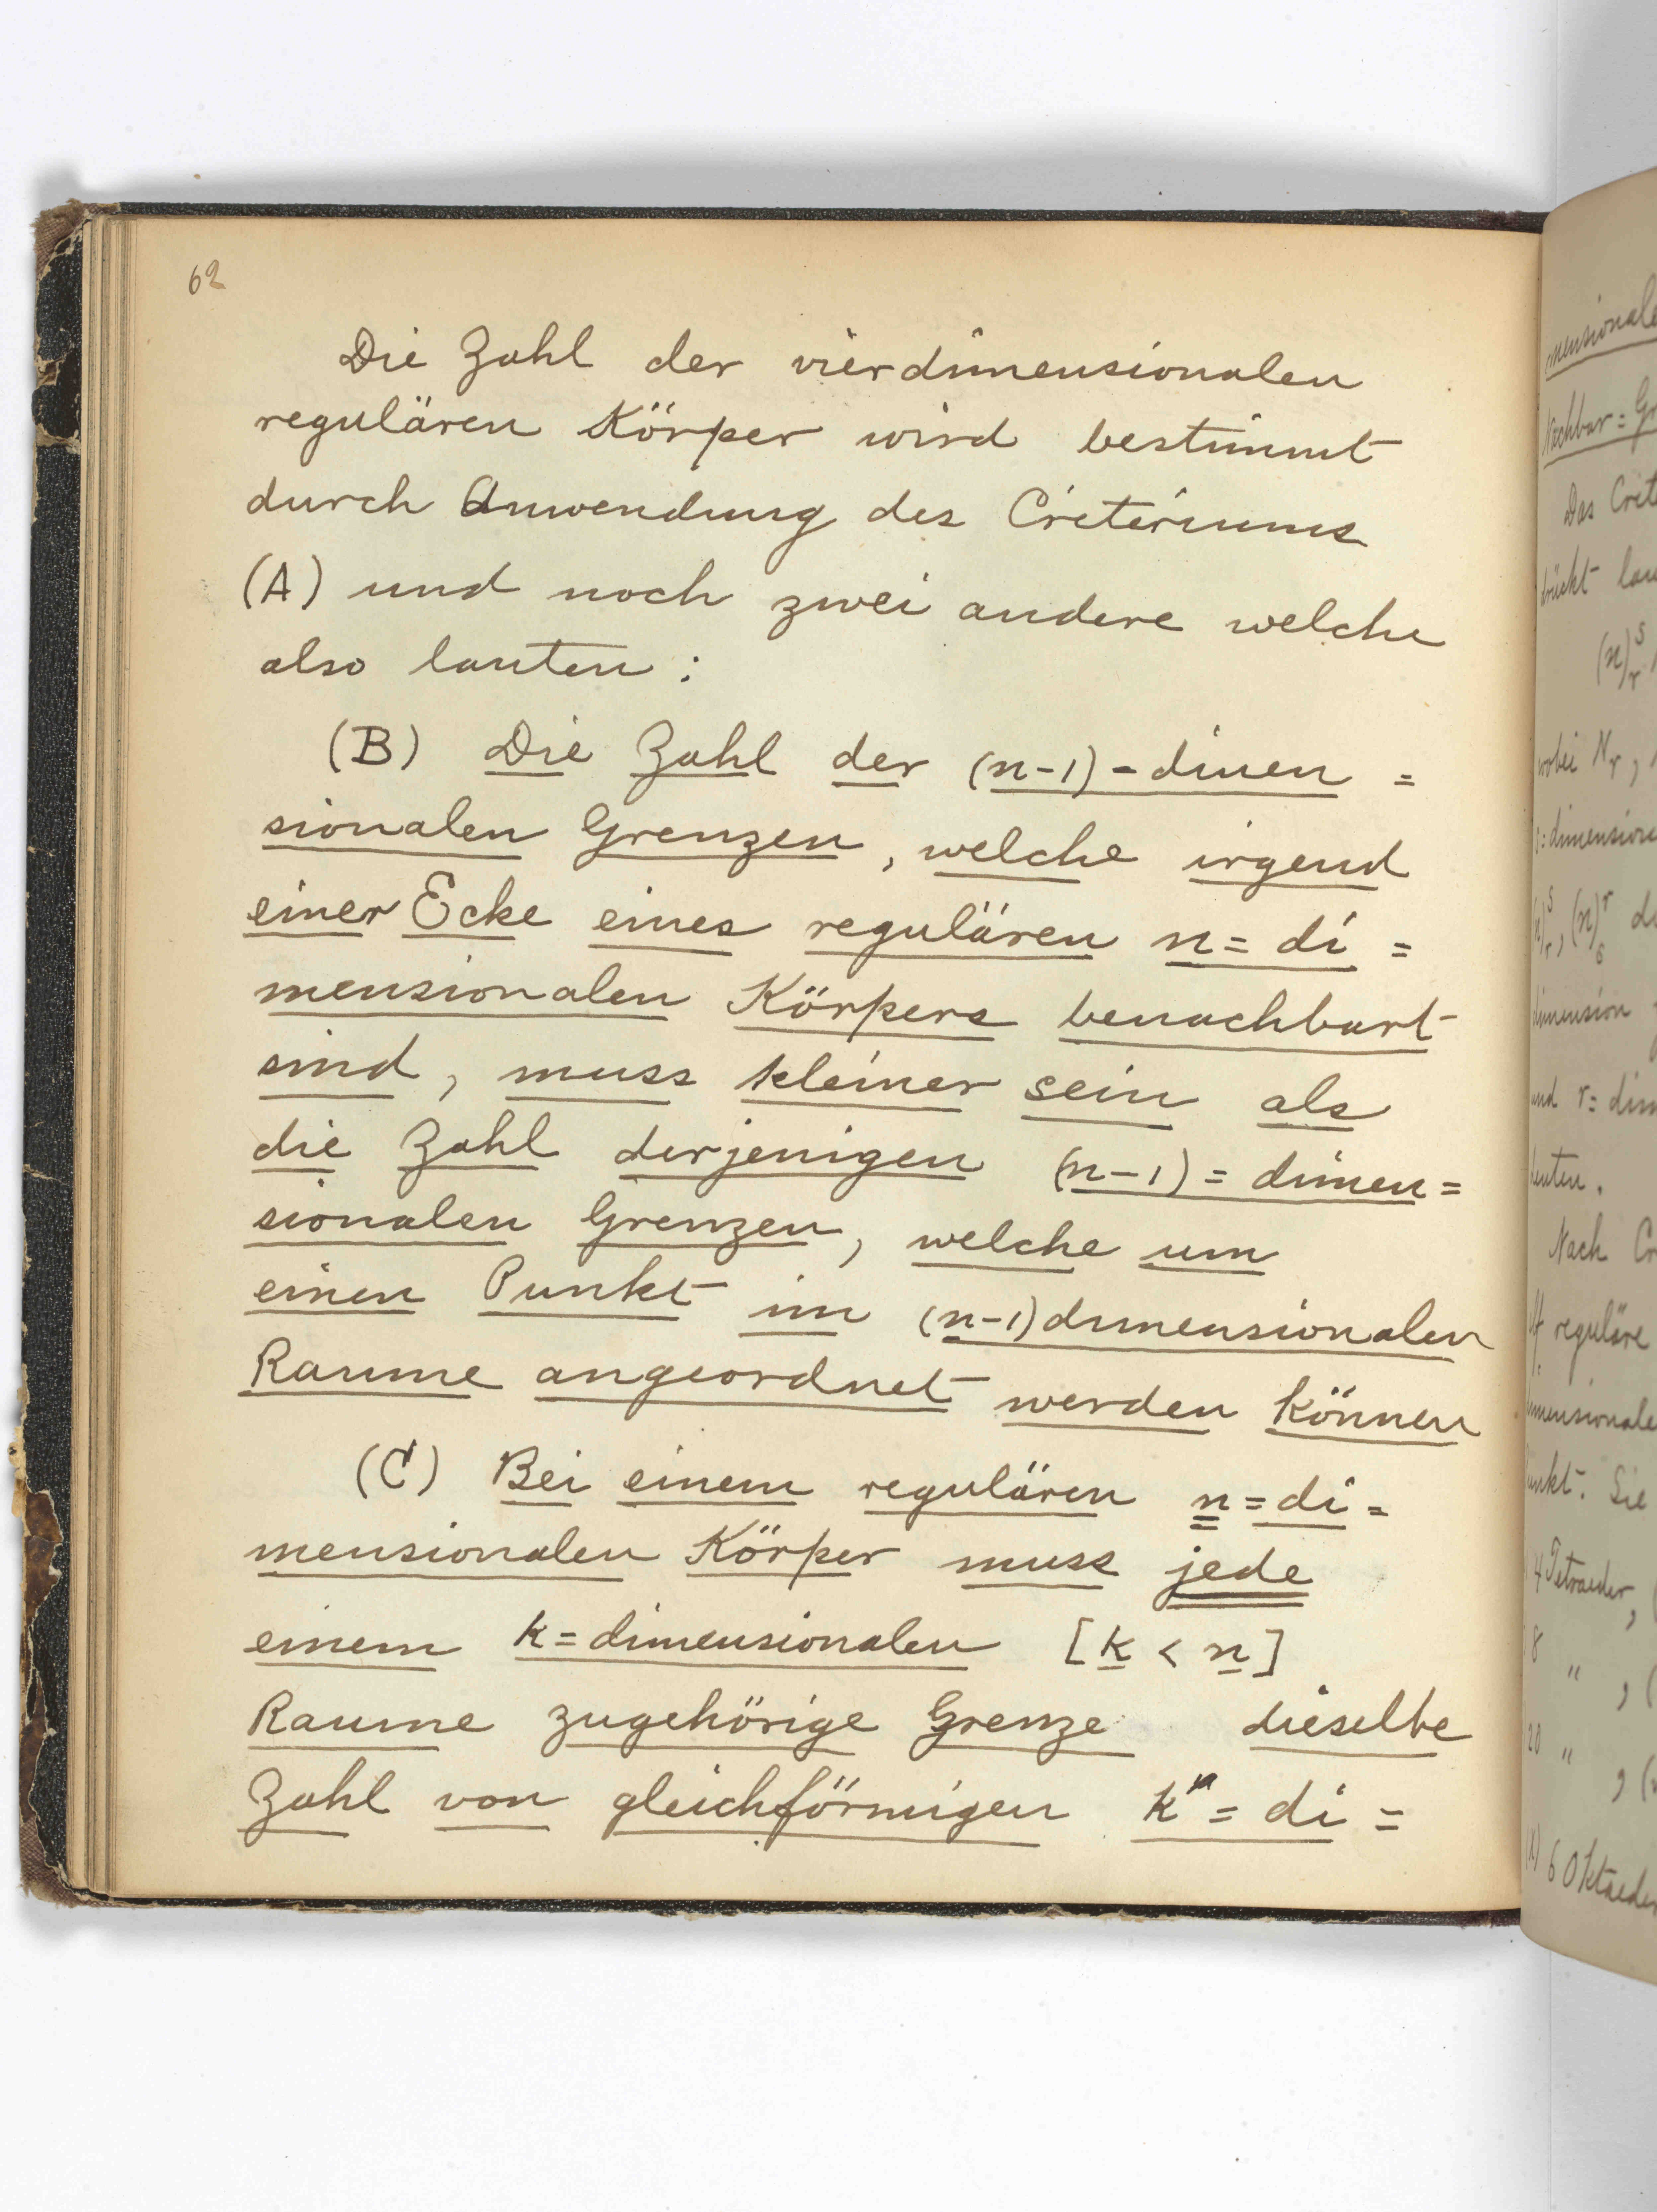 62
Die Zahl der vierdimensionalen
regulären Körper wird bestimmt
durch Anwendung des Criteriums
(A) und noch zwei andere welche
also lauten :
(B) Die Zahl der (n-1)-dimen =
sionalen Grenzen, welche irgend
einer Ecke eines regulären n=di =
mensionalen Körpers benachbart
sind, muss kleiner sein als
die Zahl derjenigen (n-1)=dimen=
sionalen Grenzen, welche um
einen Punkt im (n-1)dimensionalen
Raume angeordnet werden können
(C) Bei einem regulären n=di=
mensionalen Körper muss jede
einem k=dimensionalen [k < n]
Raume zugehörige Grenze dieselbe
Zahl von gleichförmigen k"=di=
mensionale
Nachbar=
Das
(n)
wobei
dimension
und r=
Nach
reguläre
mensionale
Sie
4 Tetraeder,
8 " ,
20 " ,
6 Oktaeder